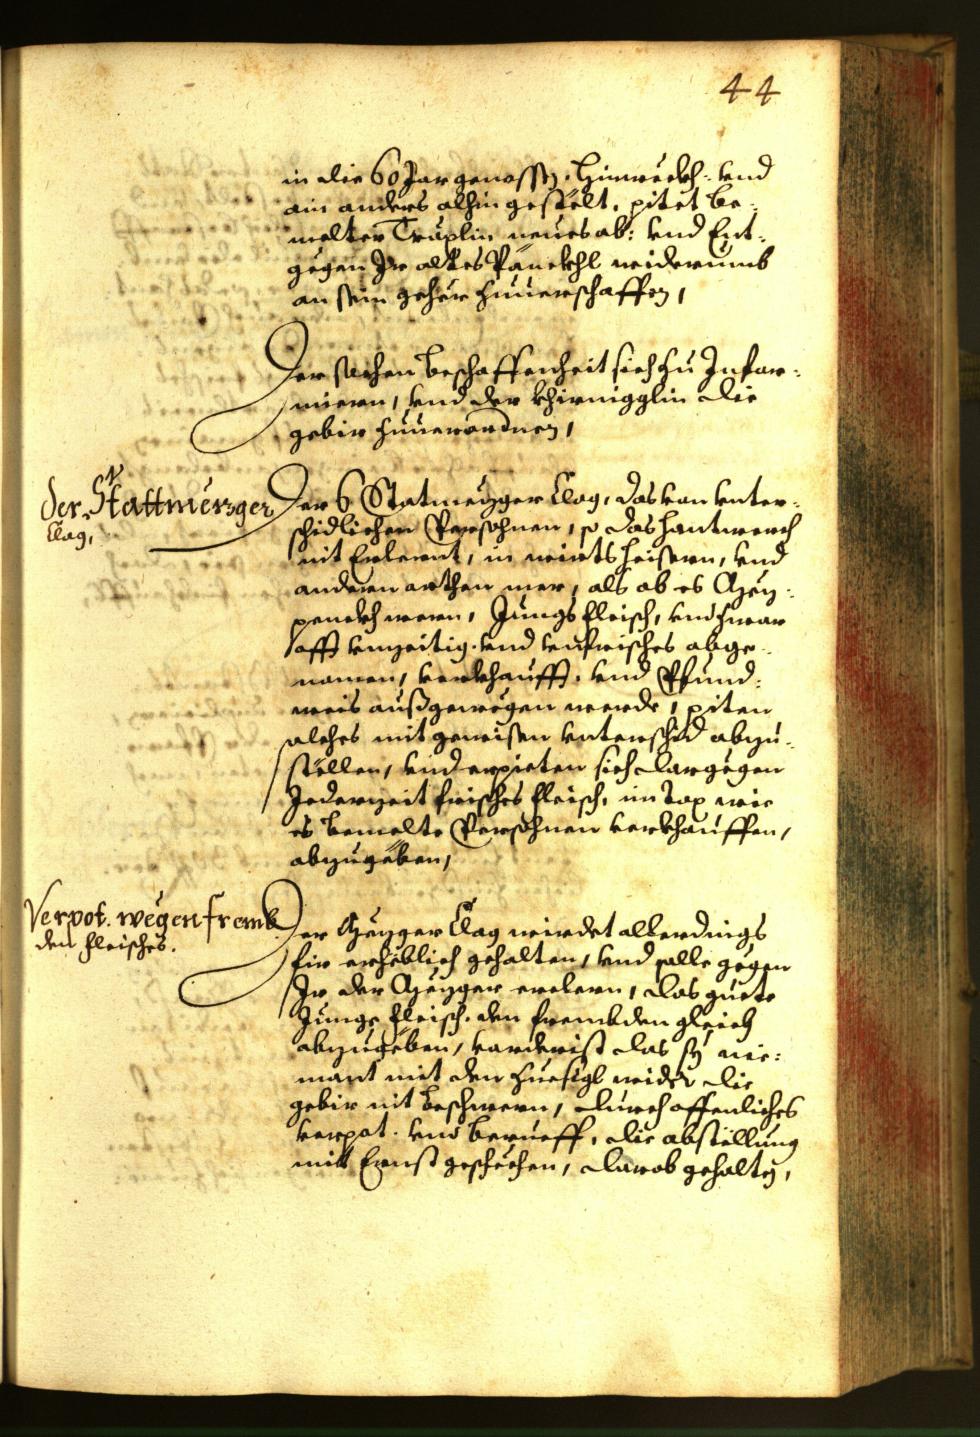 44
in die 60 Jar genossen, hinweckh: vnd
ain anders alhin gestelt, pitet be-
melter Träplin neues ab: vnd Ent-
gegen Ir altes Pänckhl widerumb
an sein gehör zuuerschaffen,
Der sachen beschaffenheit sich zu Infor-
miern, vnd der khirnigglin die
gebir zuuerordnen,
Der Stattmetzger
Clag,
Der 6 Statmezger Clag, das von vnter-
schidlichen Persohnen, so das hantwerch
nit Erlernt, in wirtsheisern, vnd
andern orthen mer, als ob es Mez-
penckh weren, Jungs fleisch, vnd zwar
offt vnzeitig. vnd vnfrisches abge-
nomen, verkhaufft, vnd Pfund-
weis außgewegen werde, piten
solches mit gewisen vnterschid abzu-
stöllen, vnd erpieten sich dargegen
Jederzeit frisches fleisch, im Tax wie
es bemelte Persohnen verkhauffen,
abzugeben,
Verpot. wegen fremb
den fleisches.
Der Mezger Clag wirdet allerdings
fir erheblich gehalten, vnd solle gegen
Ir der Mezger erclern, das guete
Junge fleisch, den frembden gleich
abzugeben, vorderist das sy nie-
mant mit den zuefigl wider die
gebir nit beschwern, durch offenliches
verpot. vnd berueff, die abstöllung
mit Ernst geschechen, darob gehalten,